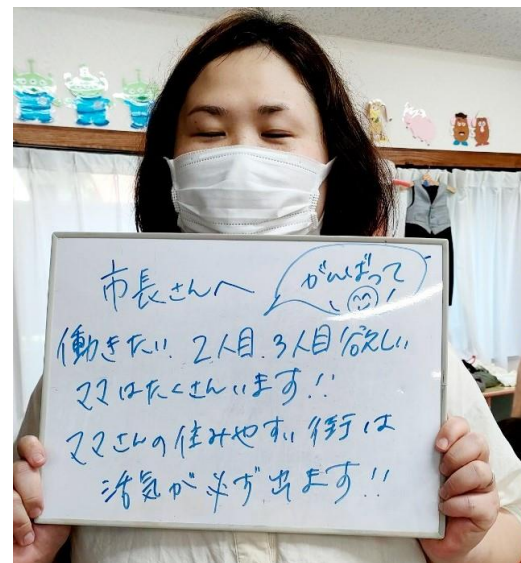 市長さんへ
がんばって
働きたい、2人目、3人目欲しい
ママはたくさんいます!!
ママさんの住みやすい街は
活気が必ず出ます!!